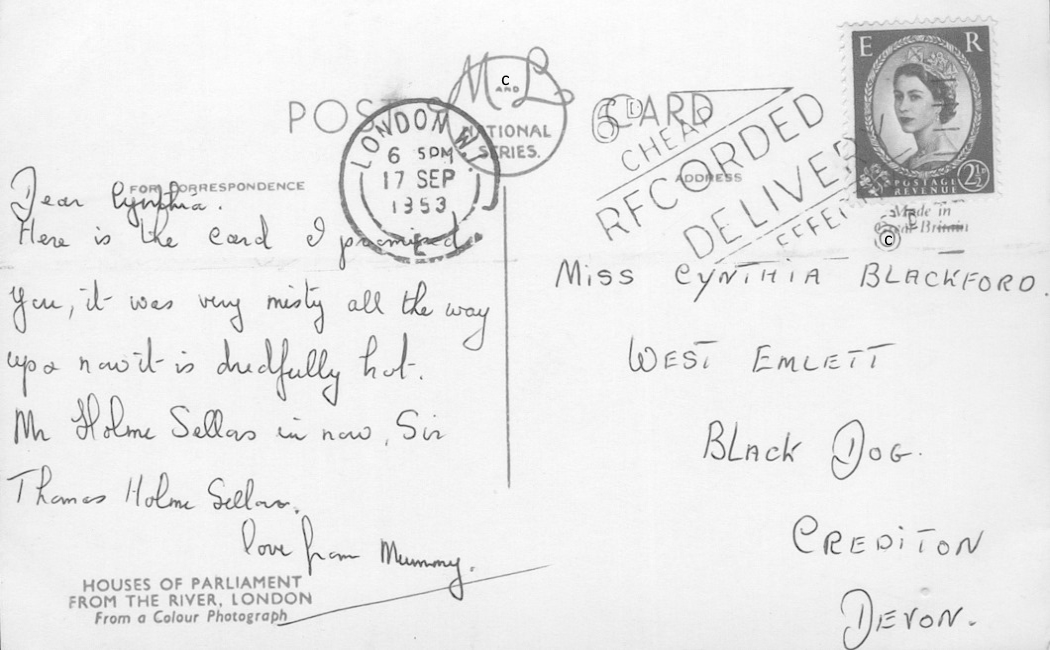 POST CARD
M AND L
NATIONAL
SERIES.
LONDON W.1
6 15PM
17 SEP
1953
CHEAP
RECORDED
DELIVERY
E R
POSTAGE
REVENUE 2½
Made in
Great Britain
FOR CORRESPONDENCE
ADDRESS
Dear Cynthia.
Here is the card I promised
you, it was very misty all the way
up & now it is dredfully hot.
Mr Holme Sellors is now, Sir
Thomas Holme Sellors.
love from Mummy.
HOUSES OF PARLIAMENT
FROM THE RIVER, LONDON
From a Colour Photograph
MISS CYNTHIA BLACKFORD.
WEST EMLETT
BLACK DOG.
CREDITON
DEVON.